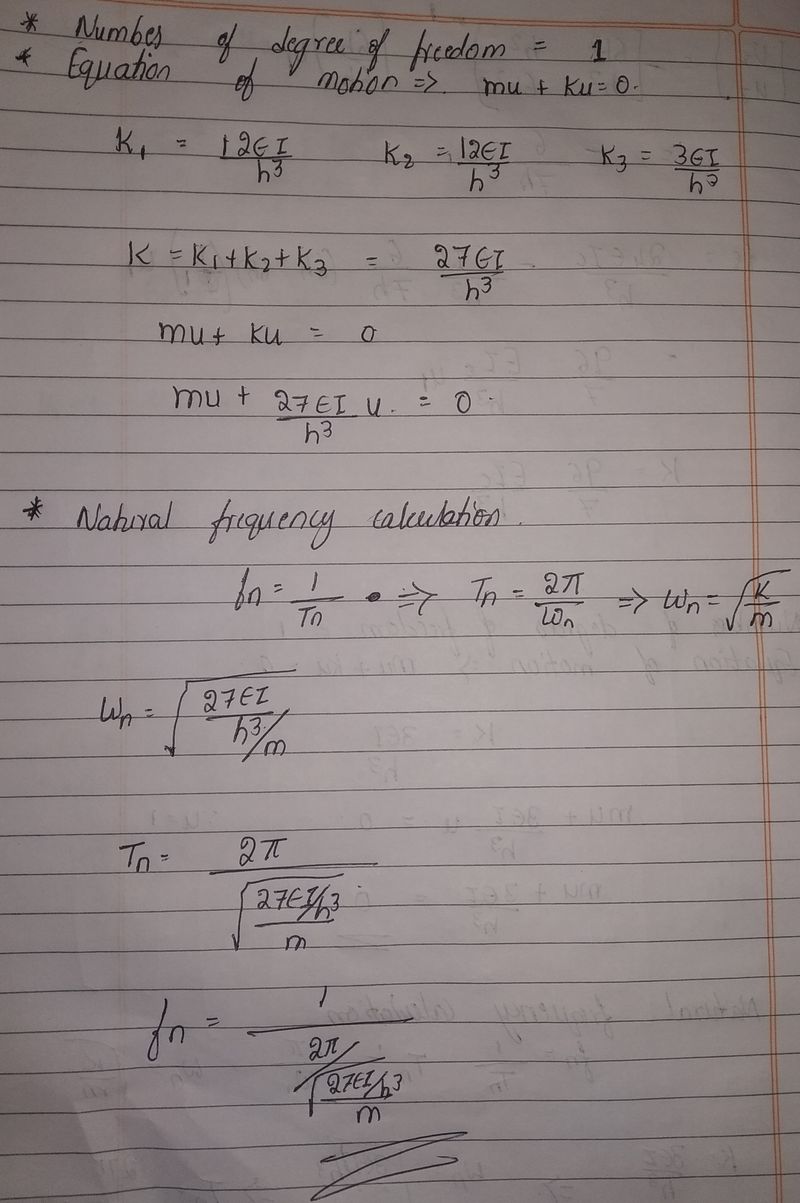 * Number of degree of freedom = 1
* Equation of motion => mu + ku = 0.
K₁ = 12EI/h³ K₂ = 12EI/h³ K₃ = 3EI/h³
K = K₁+K₂+K₃ = 27EI/h³
mu + ku = 0
mu + 27EI/h³ u. = 0.
* Natural frequency calculation.
fn = 1/Tn • => Tn = 2π/ωn => ωn = √(K/m)
ωn = √(27EI/h³/m)
Tn = 2π/√(27EI/h³/m)
fn = 1/(2π/√(27EI/h³/m))